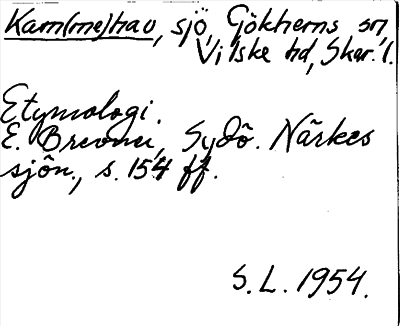 Kam(me)hav, sjö, Gökhems sn,
Vilske hd, Skar. l.
Etymologi.
E. Brevner, Sydö. Närkes
sjön., s. 154 ff.
S. L. 1954.